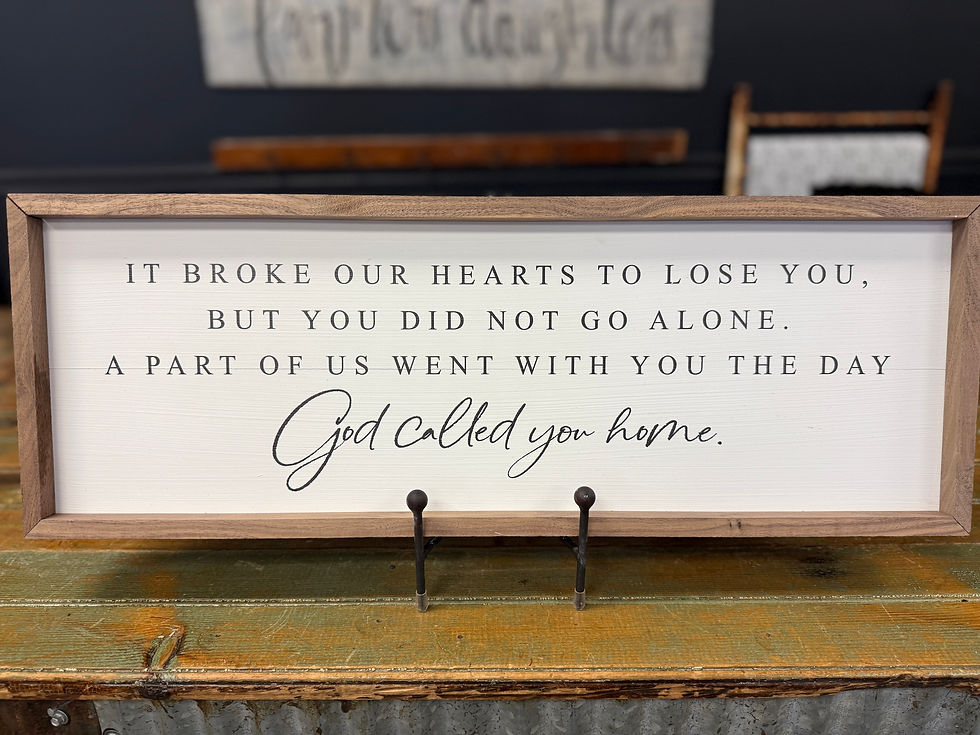 IT BROKE OUR HEARTS TO LOSE YOU,
BUT YOU DID NOT GO ALONE.
A PART OF US WENT WITH YOU THE DAY
God called you home.